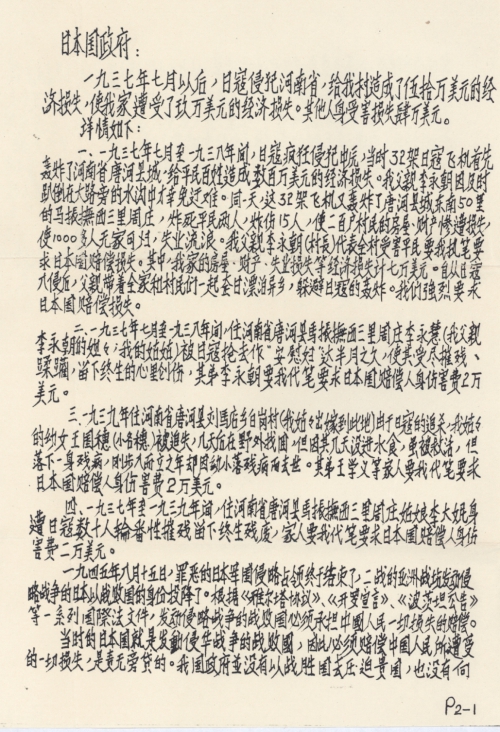 日本国政府：
一九三七年七月以后，日寇侵犯河南省，给我村造成了伍拾万美元的经
济损失，使我家遭受了玖万美元的经济损失。其他人身受害损失肆万美元。
详情如下：
一、一九三七年七月至一九三八年间，日寇疯狂侵犯中原，当时32架日寇飞机首先
轰炸了河南省唐河县城，给平民百姓造成数百万美元的经济损失。我父亲李永朝因及时
趴倒在大路旁的水沟中才幸免过难。同一天，这32架飞机又轰炸了唐河县城东南50里
的马振撫西三里周庄，炸死平民两人，炸伤15人，使二百户村民的房屋、财产惨遭损失，
使1000多人无家可归，失业流浪。我父亲李永朝(村长)代表全村受害平民要我执笔要
求日本国赔偿损失。其中，我家的房屋、财产、失业损失等经济损失计七万美元。自从日寇
入侵后，父亲带着全家和村民们一起整日漂泊异乡，躲避日寇的轰炸。我们强烈要求
日本国赔偿损失。
二、一九三七年七月至一九三八年间，住河南省唐河县马振撫西三里周庄李永慧(我父亲
李永朝的姐々，我的姑姑)被日寇抢去作"安慰妇"达半月之久，使其受尽摧残、
蹂躏，留下终生的心里创伤，其弟李永朝要我代笔要求日本国赔偿人身伤害费2万
美元。
三、一九三九年住河南省唐河县刘马店乡白岗村(我姑々出嫁到此地)由于日寇的追杀，我姑々
的幼女王国穗(小名穗)被迫失，几天后在野外找回，但因其几天没进水食，虽被救活，但
落下一身残病，刚步入而立之年却因幼小落残病而去世。其弟王学义等家人要我代笔要求
日本国赔偿人身伤害费2万美元。
四、一九三七年至一九三九年间，住河南省唐河县马振撫西三里周庄姑娘李大妮身
遭日寇数十人轮番性摧残留下终生残废，家人要我代笔要求日本国赔偿人身伤
害费二万美元。
一九四五年八月十五日，罪恶的日本军国侵略占领终于结束了，二战的亚洲战场发动侵
略战争的日本以战败国的身份投降了。根据《雅尔塔协议》、《开罗宣言》、《波茨坦公告》
等一系列国際法文件，发动侵略战争的战败国必须承担中国人民一切损失的赔偿。
当时的日本国就是发動侵华战争的战败国，因此必须赔偿中国人民所遭受
的一切损失，是责无旁贷的。我国政府並没有以战胜国去压迫贵国，也没有向
P2-1